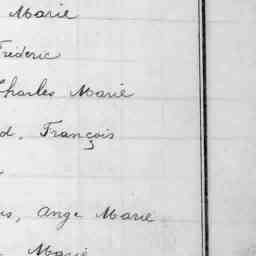 Marie
Frédéric
Charles Marie
d, François
is, Ange Marie
Marie